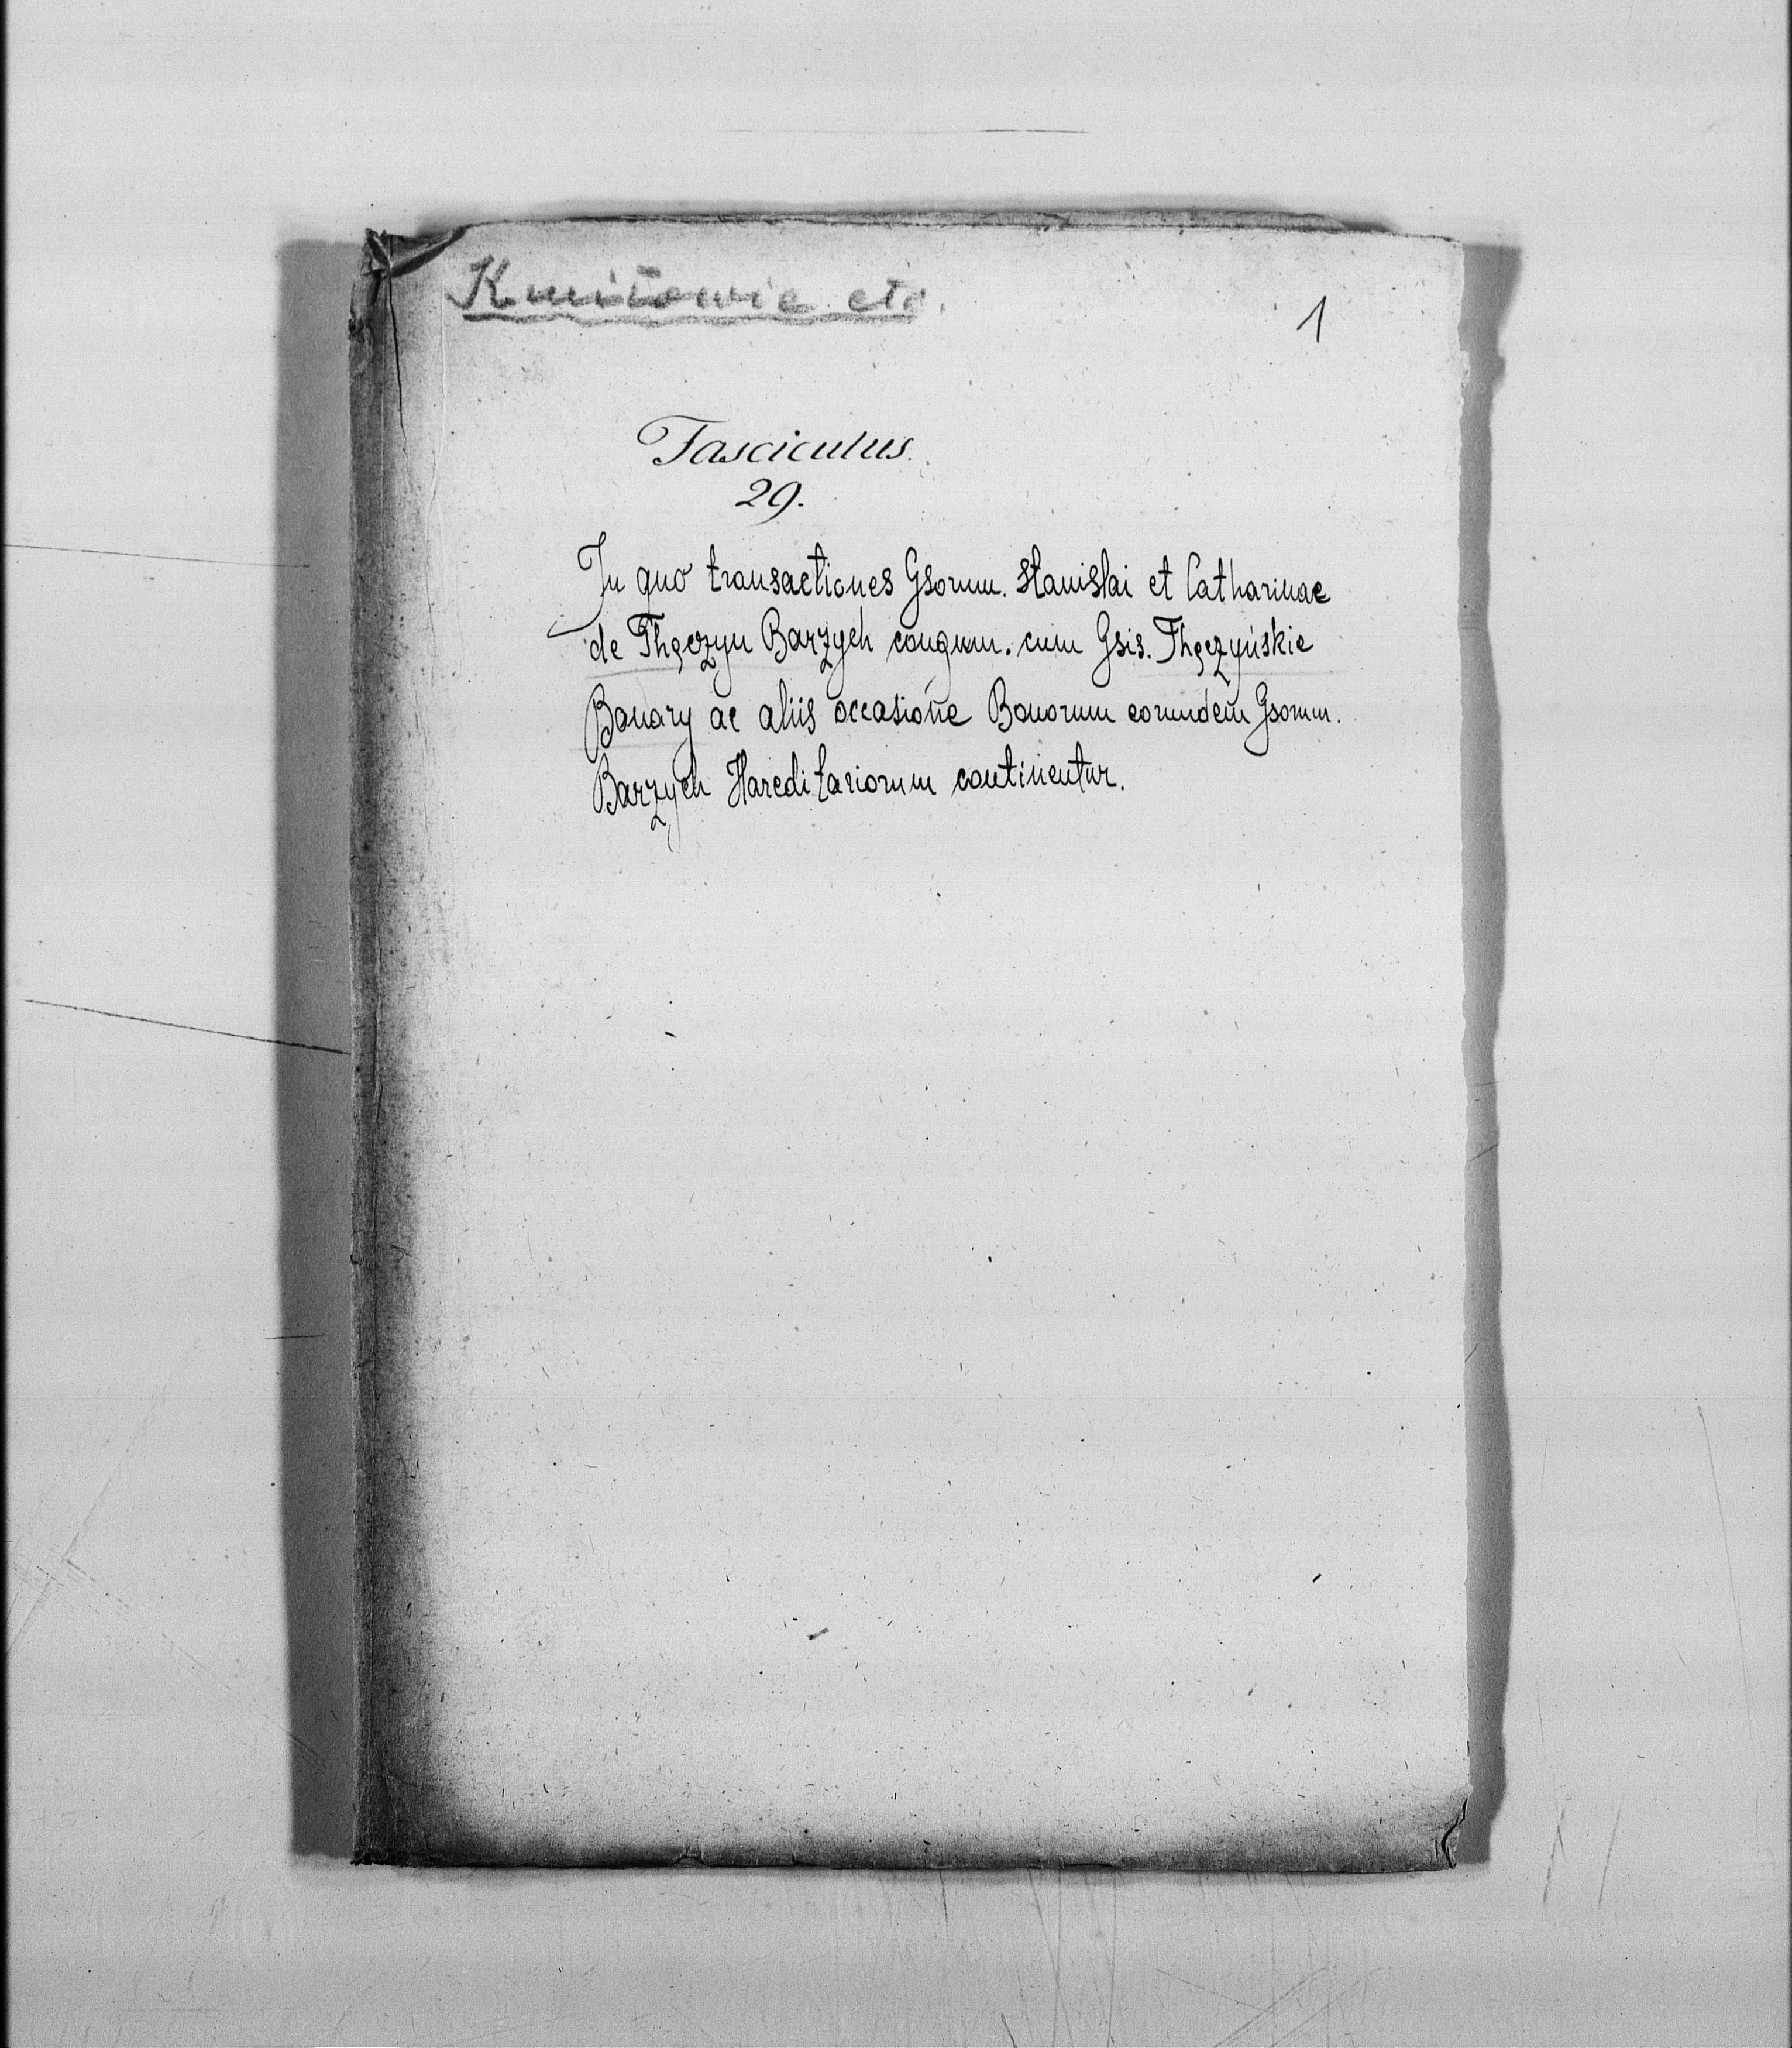 Kmitowie etc.
1
Fasciculus.
29.
In quo transactiones Gsorum. Stanislai et Catharinae
de Thęczyn Barzych congum. cum Gsis. Thęczyńskie
Bonary ac aliis occasione Bonorum eorundem Gsorum.
Barzych Hareditariorum continentur.